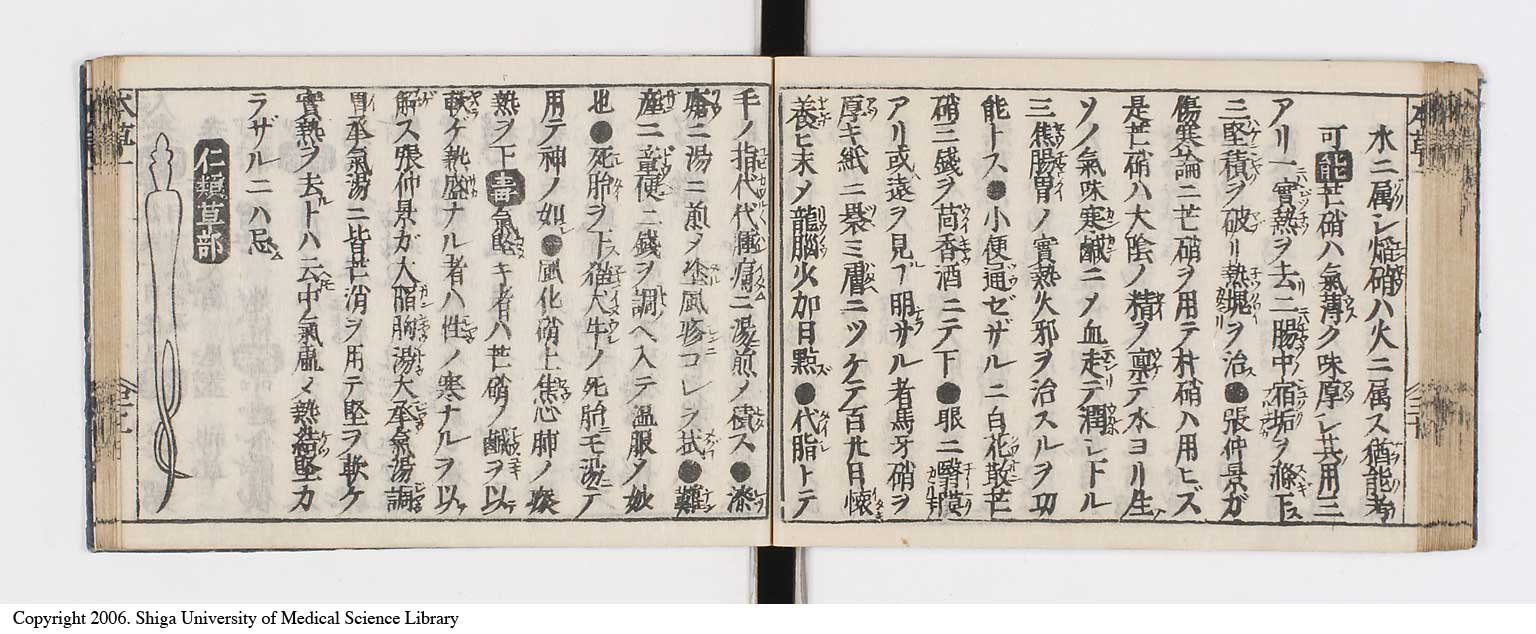 水ニ属シ焔硝ハ火ニ属ス猶能考
可能芒硝ハ氣薄ク味厚シ其用三
アリ一實熱ヲ去二腸中ノ宿垢ヲ滌下ス
三堅積ヲ破リ熱塊ヲ治ス●張仲景ガ
傷寒論ニ芒硝ヲ用テ朴硝ハ用ヒズ
是芒硝ハ大陰ノ精ヲ禀テ水ヨリ生ノ
ソノ氣味寒鹹ニメ血走テ潤シトル
三焦腸胃ノ實熱火邪ヲ治スルヲ功
能トス●小便通ゼザルニ白花散芒
硝三錢ヲ茴香酒ニテ下●眼ニ翳膜
アリ或遠ヲ見フ明サル者馬牙硝ヲ
厚キ紙ニ裹ミ膚ニツケテ百廾日懐
養ヒ末メ龍腦少加目點ズ●代脂トテ
手ノ指代代腫痛ニ湯煎ノ積ス●漆
瘡ニ湯ニ煎メ塗風疹コレヲ拭●難
産ニ童便ニ錢ヲ調ヘ入テ温服メ妙
也●死胎ヲ下ス猫犬牛ノ死胎モ湯ニテ
用テ神ノ如シ●風化硝上焦心肺ノ痰
熱ヲ下壽氣堅キ者ハ芒硝ノ鹹ヲ以テ
軟ケ熱盛ナル者ハ性ノ寒ナルヲ以テ
解ス張仲景ガ大陥胸湯大承氣湯調
胃承氣湯ニ皆芒消ヲ用テ堅ヲ軟ケ
實熱ヲ去ルトハ云トモ中ノ氣虚メ熱結堅カ
ラザルニハ忌ム
仁類草部
Copyright 2006. Shiga University of Medical Science Library